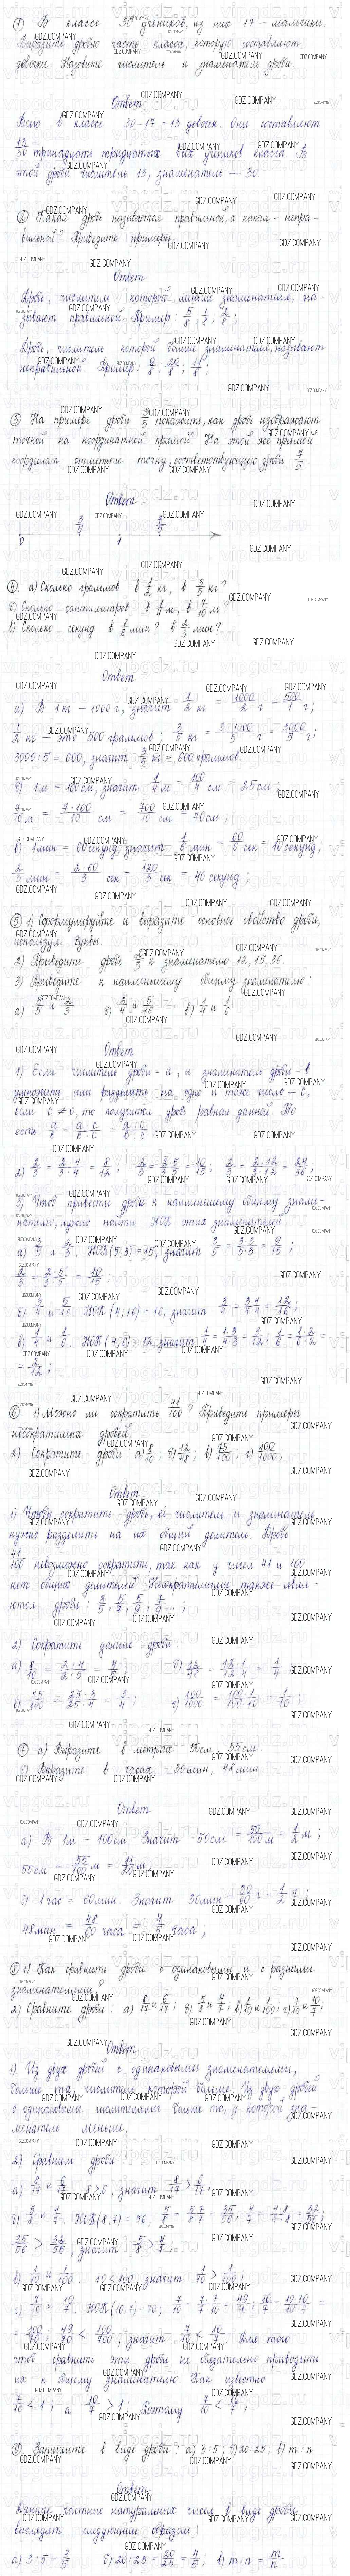 ① В классе 30 учеников, из них 17 – мальчики.
Выразите дробью часть класса, которую составляют
девочки. Назовите числитель и знаменатель дроби.
Ответ
Всего в классе 30-17=13 девочек. Они составляют
13/30 тринадцать тридцатых всех учеников класса. В
этой дроби числитель 13, знаменатель – 30.
② Какая дробь называется правильной, а какая – непра-
вильной? Приведите примеры.
Ответ
Дробь, числитель которой меньше знаменателя, на-
зывают правильной. Пример
Дробь, числитель которой больше знаменателя, называют
неправильной. Пример:
③ На примере дроби 3/5 покажите, как дробь изображают
точкой на координатной прямой. На этой же прямой
отметьте точку, соответствующую дроби 7/5.
Ответ
3/5 7/5
0 1
④ а) Сколько граммов в 1/2 кг, в 3/5 кг?
б) Сколько сантиметров в 1/4 м, в 7/10 м?
в) Сколько секунд в 1/6 мин? в 2/3 мин?
Ответ
а) В 1 кг – 1000 г, значит 1/2 кг = 1000/2 г = 500/1 г;
1/2 кг – это 500 граммов; 3/5 кг = 3·1000/5 г = 3000/5 г;
3000:5=600, значит 3/5 кг = 600 граммов.
б) 1м = 100см, значит 1/4 м = 100/4 см = 25см;
7/10 м = 7·100/10 см = 700/10 см = 70см;
в) 1мин = 60секунд, значит 1/6 мин = 60/6 сек = 10секунд;
2/3 мин = 2·60/3 сек = 120/3 сек = 40 секунд;
⑤ 1) Сформулируйте и выразите основное свойство дроби,
используя буквы.
2) Приведите дробь 2/3 к знаменателю 12, 15, 36.
3) Приведите к наименьшему общему знаменателю:
а) 3/5 и 2/3 б) 3/4 и 5/16 в) 1/4 и 1/6
Ответ
1) Если числитель дроби - а, и знаменатель дроби - в
умножить или разделить на одно и тоже число – с,
если с≠0, то получится дробь равная данной. То
есть а/в = а·с/в·с = а:с/в:с
2) 2/3 = 2·4/3·4 = 8/12; 2/3 = 2·5/3·5 = 10/15; 2/3 = 2·12/3·12 = 24/36;
3) Чтоб привести дроби к наименьшему общему знаме-
нателю, нужно найти НОК этих знаменателей
а) 3/5 и 2/3. НОК(5;3)=15, значит 3/5 = 3·3/5·3 = 9/15;
2/3 = 2·5/3·5 = 10/15;
б) 3/4 и 5/16. НОК(4;16)=16, значит 3/4 = 3·4/4·4 = 12/16;
в) 1/4 и 1/6. НОК(4,6)=12, значит 1/4 = 1·3/4·3 = 3/12; 1/6 = 1·2/6·2 =
= 2/12;
⑥ 1) Можно ли сократить 41/100? Приведите примеры
несократимых дробей.
2) Сократите дроби: а) 8/10; б) 12/48; в) 75/100; г) 100/1000;
Ответ
1) Чтобы сократить дробь, её числитель и знаменатель
нужно разделить на их общий делитель. Дробь
41/100 невозможно сократить, так как у чисел 41 и 100
нет общих делителей. Несократимыми также явля-
ются дроби:
2) Сократить данные дроби
а) 8/10 = 2·4/2·5 = 4/5 б) 12/48 = 12·1/12·4 = 1/4;
в) 75/100 = 25·3/25·4 = 3/4; г) 100/1000 = 100·1/100·10 = 1/10;
⑦ а) Выразите в метрах 50см, 55см
б) Выразите в часах 30мин, 48мин
Ответ
а) В 1м – 100см. Значит 50см = 50/100 м = 1/2 м;
55см = 55/100 м = 11/20 м;
б) 1 час = 60мин. Значит 30мин = 30/60 ч = 1/2 ч;
48мин = 48/60 часа = 4/5 часа;
⑧ 1) Как сравнить дроби с одинаковыми и с разными
знаменателями?
2) Сравните дроби: а) 8/17 и 6/17; б) 5/8 и 4/7; в) 1/10 и 1/100; г) 7/10 и 10/7;
Ответ
1) Из двух дробей с одинаковыми знаменателями,
больше та, числитель которой больше. Из двух дробей
с одинаковыми числителями больше та, у которой зна-
менатель меньше.
2) Сравним дроби:
а) 8/17 и 6/17 8>6, значит 8/17 > 6/17;
б) 5/8 и 4/7. НОК(8,7)=56, 5/8 = 5·7/8·7 = 35/56; 4/7 = 4·8/7·8 = 32/56;
35/56 > 32/56, значит 5/8 > 4/7;
в) 1/10 и 1/100. 10<100, значит 1/10 > 1/100;
г) 7/10 и 10/7. НОК(10,7)=70; 7/10 = 7·7/7·10 = 49/70; 10/7 = 10·10/7·10 =
= 100/70; 49/70 < 100/70, значит 7/10 < 10/7 Для того
чтоб сравнить эти дроби не обязательно приводить
их к общему знаменателю. Как известно
7/10 < 1; а 10/7 > 1; Поэтому 7/10 < 10/7;
⑨. Запишите в виде дроби: а) 3:5; б) 20:25; в) m:n
Ответ
Данные частные натуральных чисел в виде дроби
выглядят следующим образом:
а) 3:5 = 3/5 б) 20:25 = 20/25 = 4/5; в) m:n = m/n